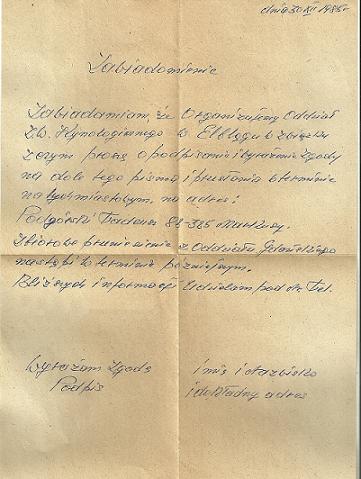 dnia 30 XII 1985r
Zawiadomienie
Zawiadamiam, że Organizujemy Oddział
Zw. Kynologicznego w Elblągu w związku
z czym proszę o podpisanie i wyrażenie zgody
na dole tego pisma i przesłania w terminie
natychmiastowym, na adres:
Podgórski Tadeusz 82-325 Markusy.
Zbiorowe przeniesienie z Oddziału Gdańskiego
nastąpi w terminie późniejszym.
Bliższych informacji Udzielam pod nr. Tel.
Wyrażam Zgodę
Podpis
imię i Nazwisko
i dokładny adres